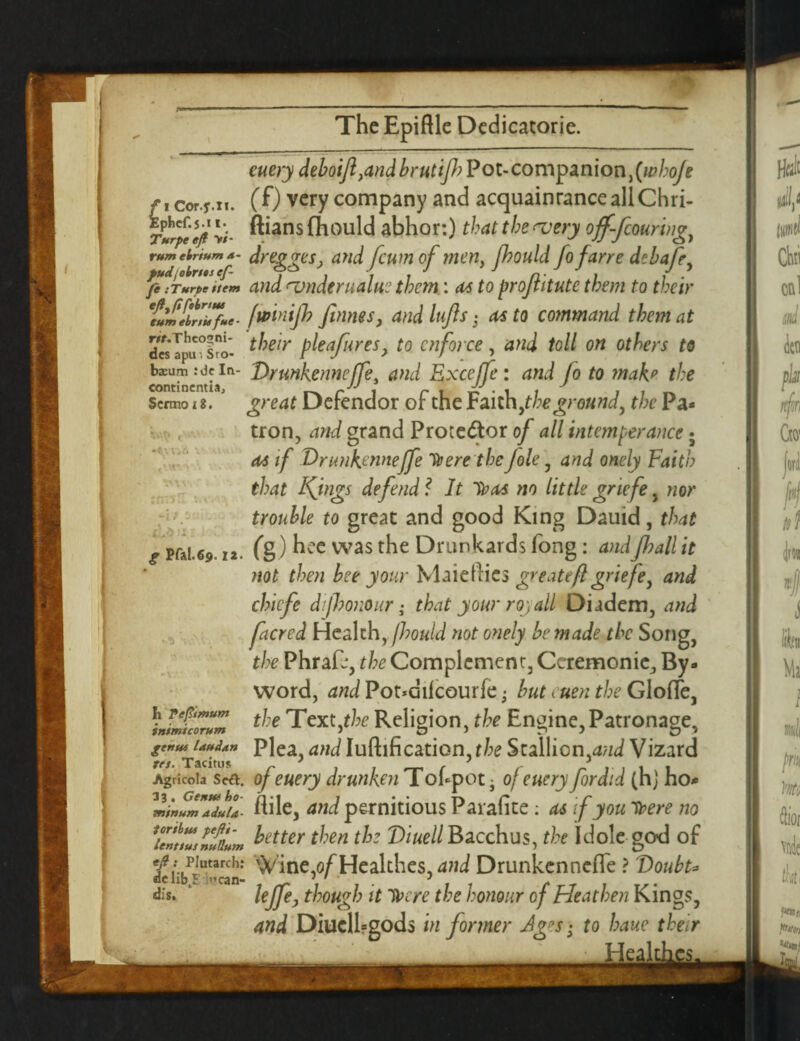 The Epistle Dedicatorie.
euery deboist,and brutish Pot-companion,(whose
(f) very company and acquaintance all Chri-
stians should abhor:) that the very off-scouring,
dregges, and scum of men, should so farre debase,
and vnderualue them: as to prostitute them to their
swinish sinnes, and lusts; as to command them at
their pleasures, to enforce, and toll on others to
Drunkennesse, and Excesse: and so to make the
great Defendor of the Faith,the ground, the Pa-
tron, and grand Protector of all intemperance;
as if Drunkennesse were the sole, and onely Faith
that Kings defend? It was no little griefe, nor
trouble to great and good King Dauid, that
(g) hee was the Drunkards song: and shall it
not then bee your Maiesties greatest griefe, and
chiefe dishonour; that your royall Diadem, and
sacred Health, should not onely be made the Song,
the Phrase, the Complement, Ceremonie, By-
word, and Pot-discourse; but euen the Glosse,
the Text,the Religion, the Engine, Patronage,
Plea, and Iustification, the Stallion,and Vizard
of euery drunken Tos-pot; of euery sordid (h) ho-
stile, and pernitious Parasite: as if you were no
better then the Diuell Bacchus, the Idole-god of
Wine,of Healthes, and Drunkennesse? Doubt-
lesse, though it were the honour of Heathen Kings,
and Diuell-gods in former Ages; to haue their
Healthes,
f 1 Cor.5.11.
Ephes.5.11.
Turpe est vi-
rum ebrium a-
pud sobrios es-
se: Turpe item
est, si sobrius
cum ebriis fue-
rit. Theogni-
des apud Sto-
bæum: de In-
continentia,
Sermo 18.
g Psal.69.12.
h Pessimum
inimicorum
genus laudan
tes. Tacitus
Agricola Sect.
33. Genus ho-
minum adula-
toribus pesti-
lentius nullum
est: Plutarch:
de lib. Educan-
dis.